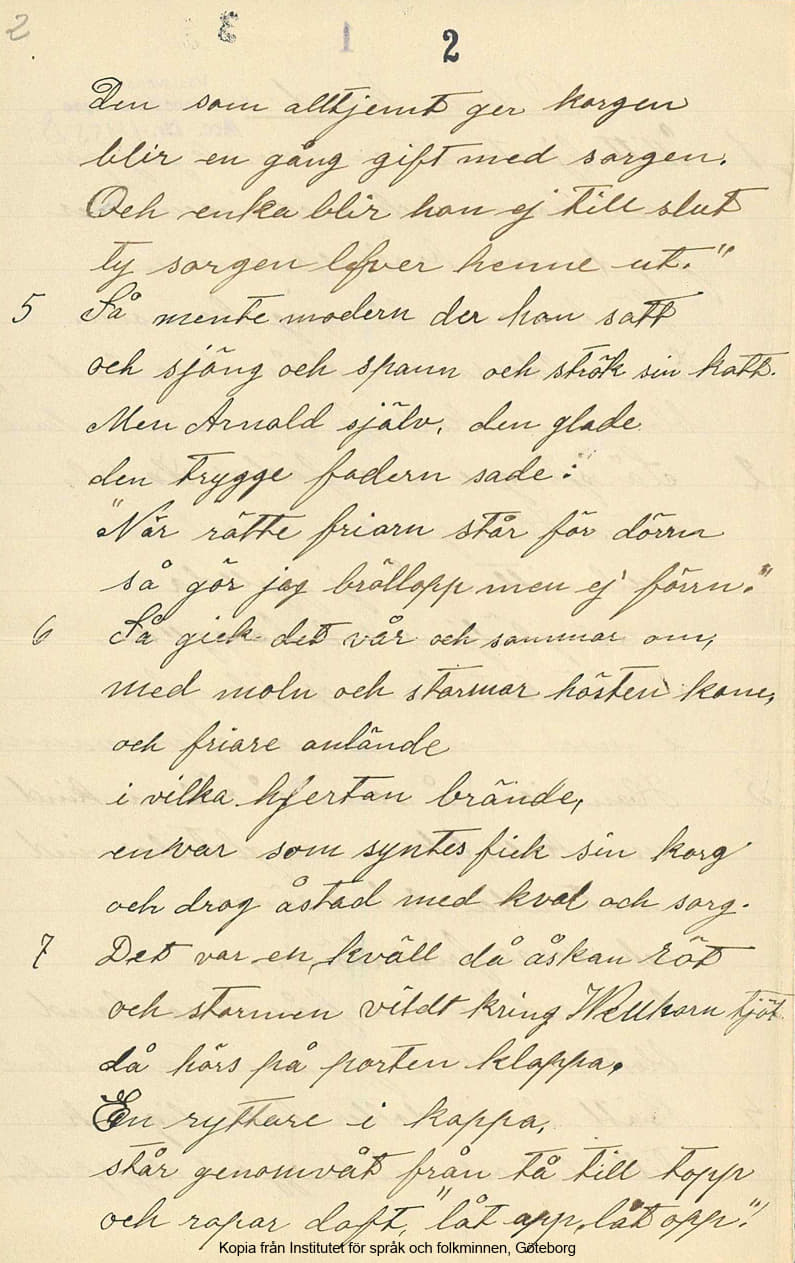 2
2
Den som alltjemt ger korgen
blir en gång gift med sorgen.
Och enka blir hon ej till slut
ty sorgen lefver henne ut."
5 Så mente modern der hon satt
och sjöng och spann och strök sin katt.
Men Arnold själv, den glade
den trygge fadern sade:
"När rätte friarn står för dörrn
så gör jag bröllopp men ej förrn."
6 Så gick det vår och sommar om,
med moln och stormar hösten kom,
och friare anlände
i vilka hjertan brände,
envar som syntes fick sin korg
och drog åstad med kval och sorg.
7 Det var en kväll då åskan röt
och stormen vildt kring Wellhorn tjöt
då hörs på porten klappa.
En ryttare i kappa,
står genomvåt från tå till topp
och ropar doft, "låt opp, låt opp"!
Kopia från Institutet för språk och folkminnen, Göteborg